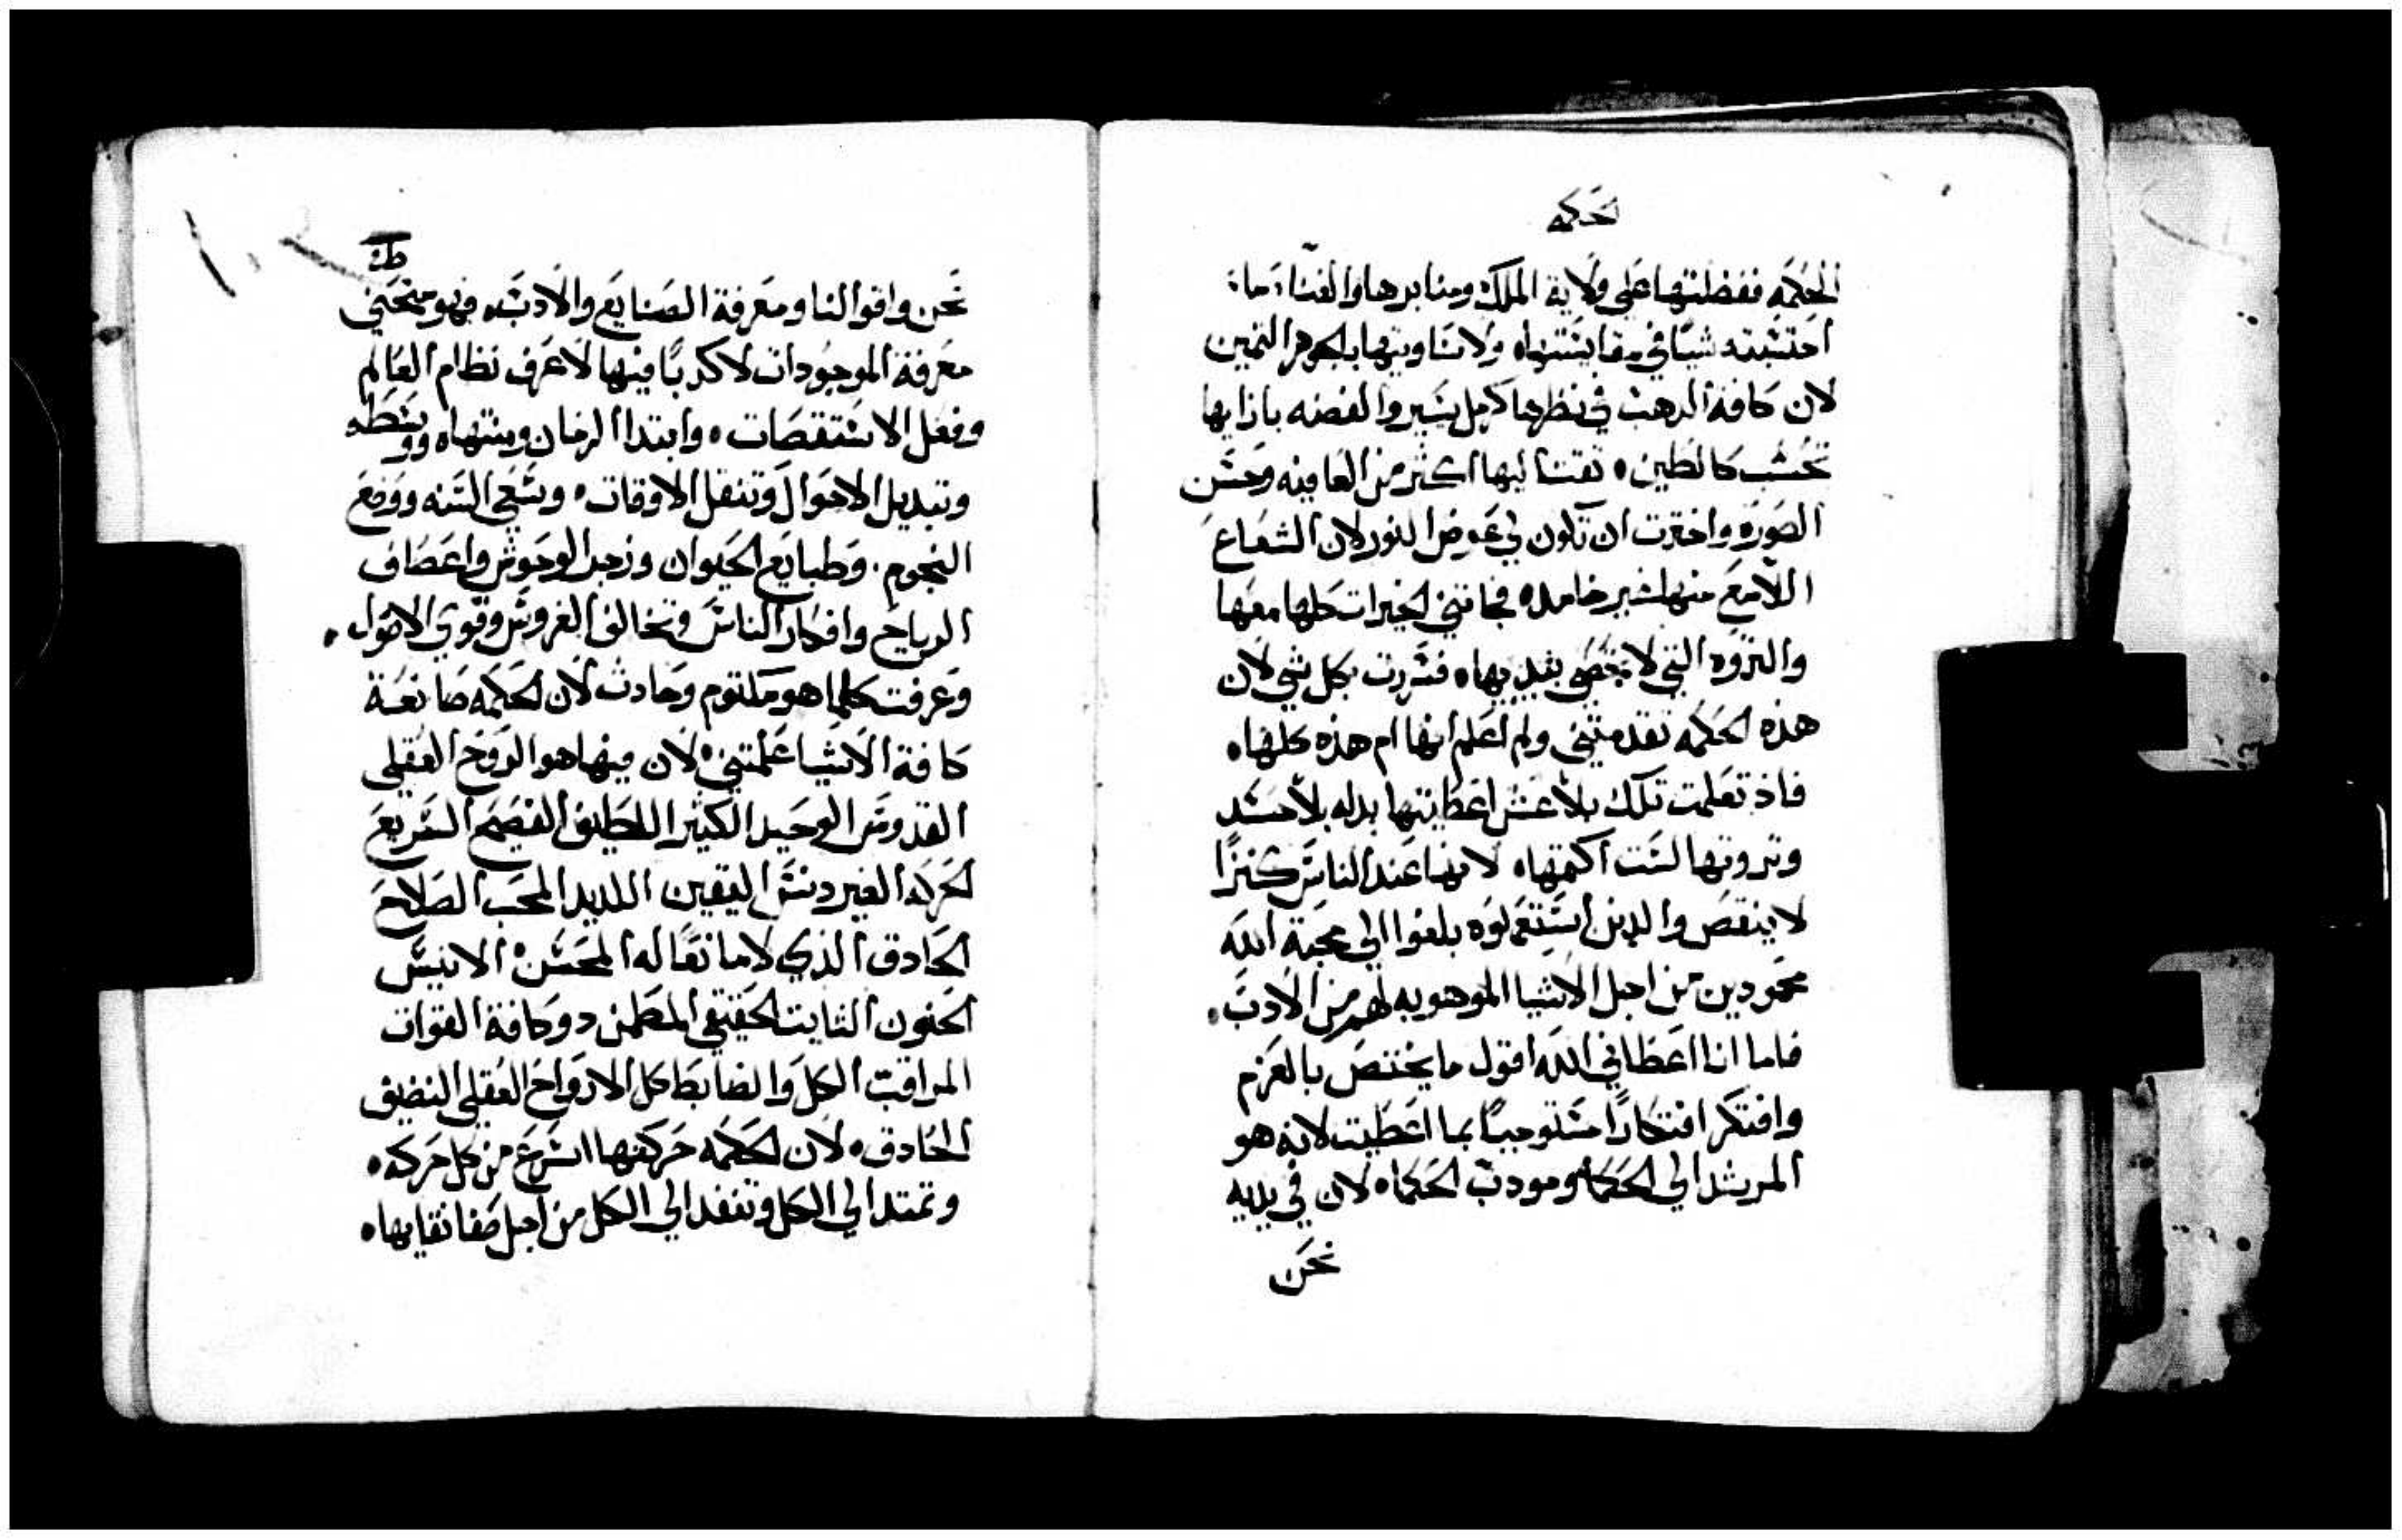 لحكمه
الحكمه ففضلتها على ولاية الملك ومنابرها والغنا ما
احتسبته شيا في مقايستها ولا ساويتها بالجوهر الثمين
لان كافة الدهب في نظرها كرمل يسير والفضه بازايها
تحسب كالطين تقت اليها اكثر من العافيه وحسن
الصوره واخترت ان تكون لي عوض النور لان الشعاع
اللامع منها غير خامد فجاتني الخيرات كلها معها
والثروه التي لا تحصى بيديها فسررت بكل شي لان
هذه الحكمه تقدمتني ولم اعلم انها ام هذه كلها
فاذ تعلمت تلك بلا غش اعطيتها بدله بلا حسد
وثروتها لست اكتمها لانها عند الناس كنزًا
لا ينقص والدين استعملوه بلغوا الي محبة الله
محمودين من اجل الاشيا الموهوبه لهم من الادب
فاما انا اعطاني الله اقول ما يختص بالعزم
وافتكر افتكارًا مستوجبًا بما اعطيت لانه هو
المرشد الي الحكمه ومودب الحكما لان في يديه
نحن
نحن واقوالنا ومعرفة الصنايع والادب فهو منحني
معرفة الموجودات لا كدبًا فيها لاعرف نظام العالم
وفعل الاستقصات وابتدا الزمان ومنتهاه ووسطه
وتبديل الاحوال وتنقل الاوقات وسعي السنه ووضع
النجوم وطبايع الحيوان وزجر الوحوش واعصاف
الرياح وافكار الناس وتخالف الغروس وقوي الاصول
وعرفت كلما هو مكتوم وحادث لان الحكمه صانعة
كافة الاشيا علمتني لان فيها هو الروح العقلي
القدوس الوحيد الكثير اللطيف الفصيح السريع
الحركه الغير دنس اليقين اللديد المحب الصلاح
الحادق الذي لا مانعًا له المحسن الانيس
الحنون الثابت الحقيقي المطمن دو كافة القوات
المراقب الكل والضابط كل الارواح العقلي النضيف
الحادق لان الحكمه حركتها اسرع من كل حركه
وتمتد الي الكل وتنفد الي الكل من اجل صفا نقايها